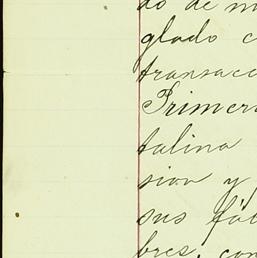 do de m
glado c
transacc
Primer
talina
sion y
sus fá
bres, con